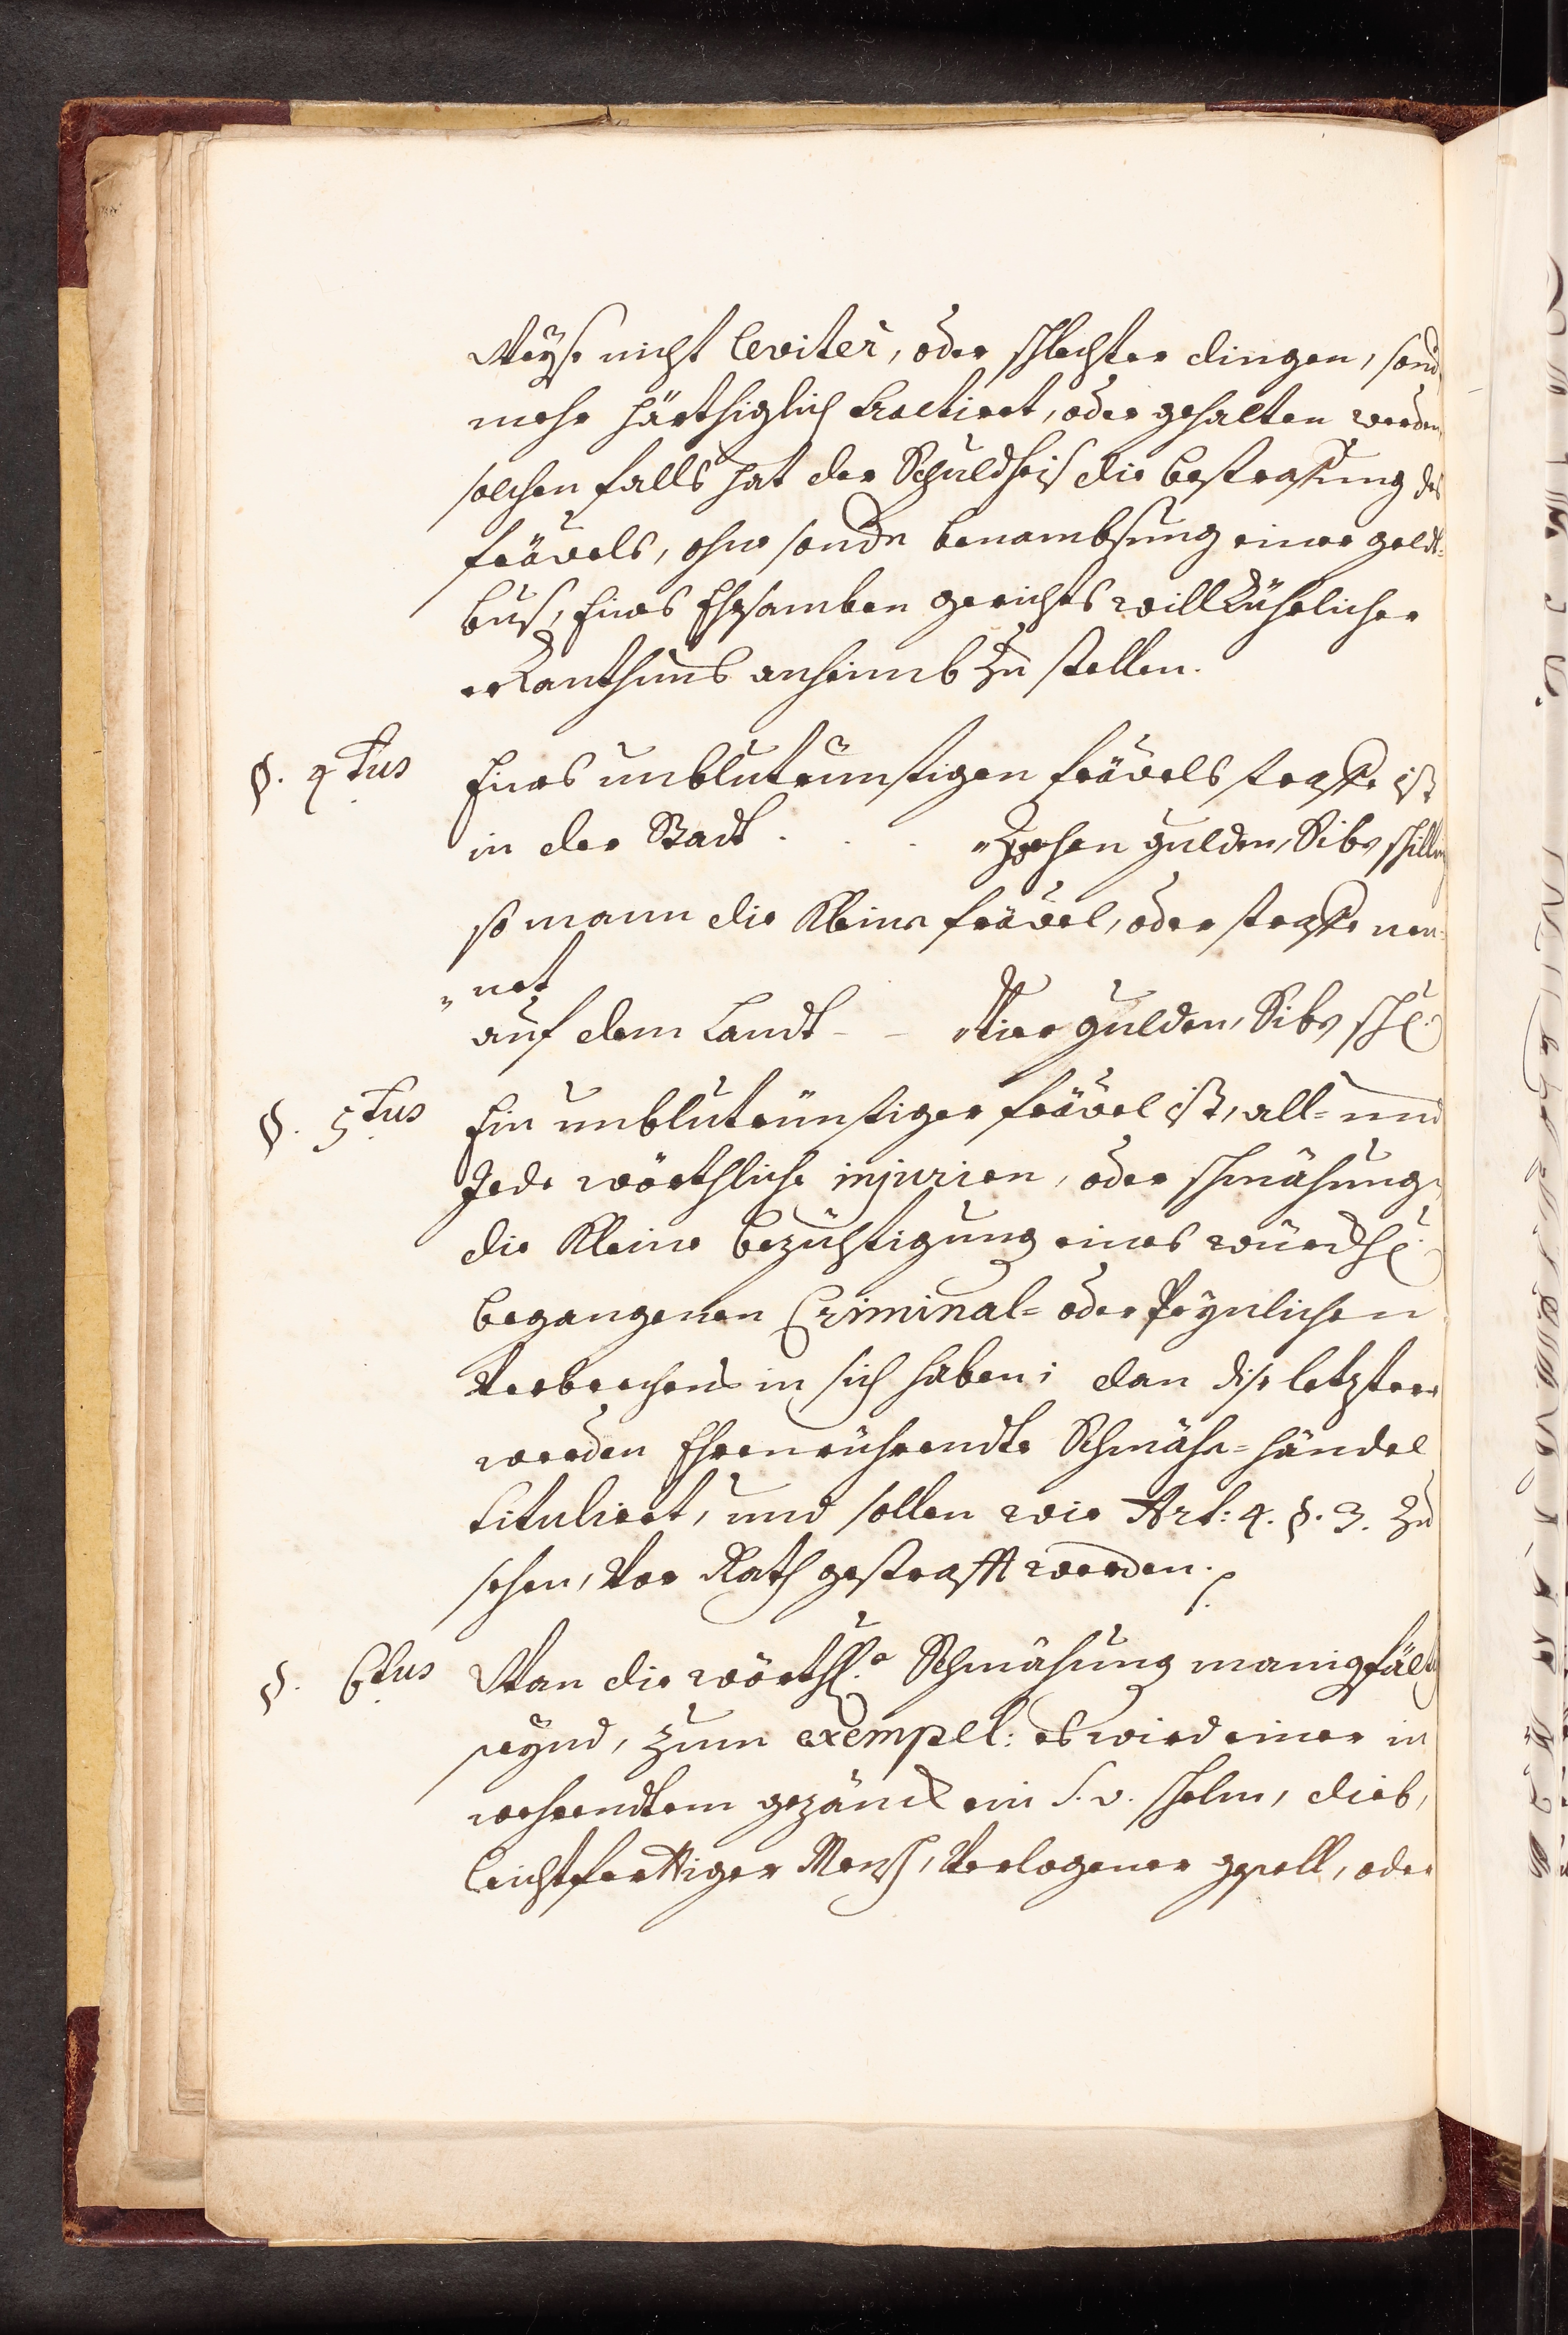 Weyse nicht leviter, oder schlechter dingen, sond
mehr härthiglich tractiret, oder gehalten werden,
solchen falls hat der Schuldheis die bestraffung des
frävels, ohne sondr benambsung einer geldt=
bus, Eines Ehrsamben gerichts willkührlicher
erkanthnus anheimb zu stellen.
§. 4tus Eines unblutrünstigen frävels straffe ist
in der Statt . . . Zehen gulden, Siben schilling
so mann die kleine frävel, oder straffe nen=
"net
auf dem Landt - - Vier gulden, Siben schl.
§. 5tus Ein unblutrünstiger frävel ist, all= und
Jede wörthliche injurien, oder schmähung,
die kleine bezüchtigung eines würckhl.
begangenen Criminal= oder Peynlichen
Verbrechens in sich haben; dan dise letztere
werden Ehrenrührendte Schmähe=händel
tituliret, und sollen wie Art: 4. §. 3. zu
sehen, Vor Rath gestrafft werden.
§. 6tus Wan die wörthl.e Schmähung manigfältig
seynd, zum exempel: es wird einer in
wehrendtem gezänck ein S. v. schelm, dieb,
leichtferttiger Mensch, Verlogener gsell, oder